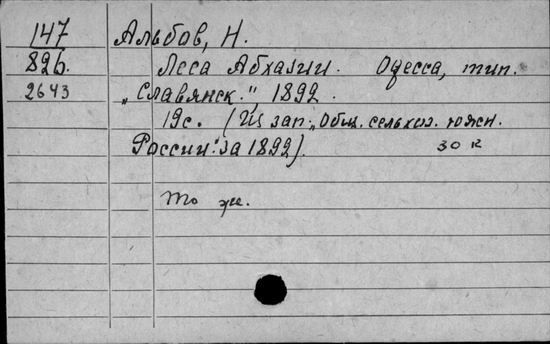 147 Альбов, Н.
826. Леса Абхазии. Одесса, тип.
2643 „Славянск.", 1892.
19с. (Из зап. „Общ. сельхоз. южн.
России" за 1892). 30 к
То же.